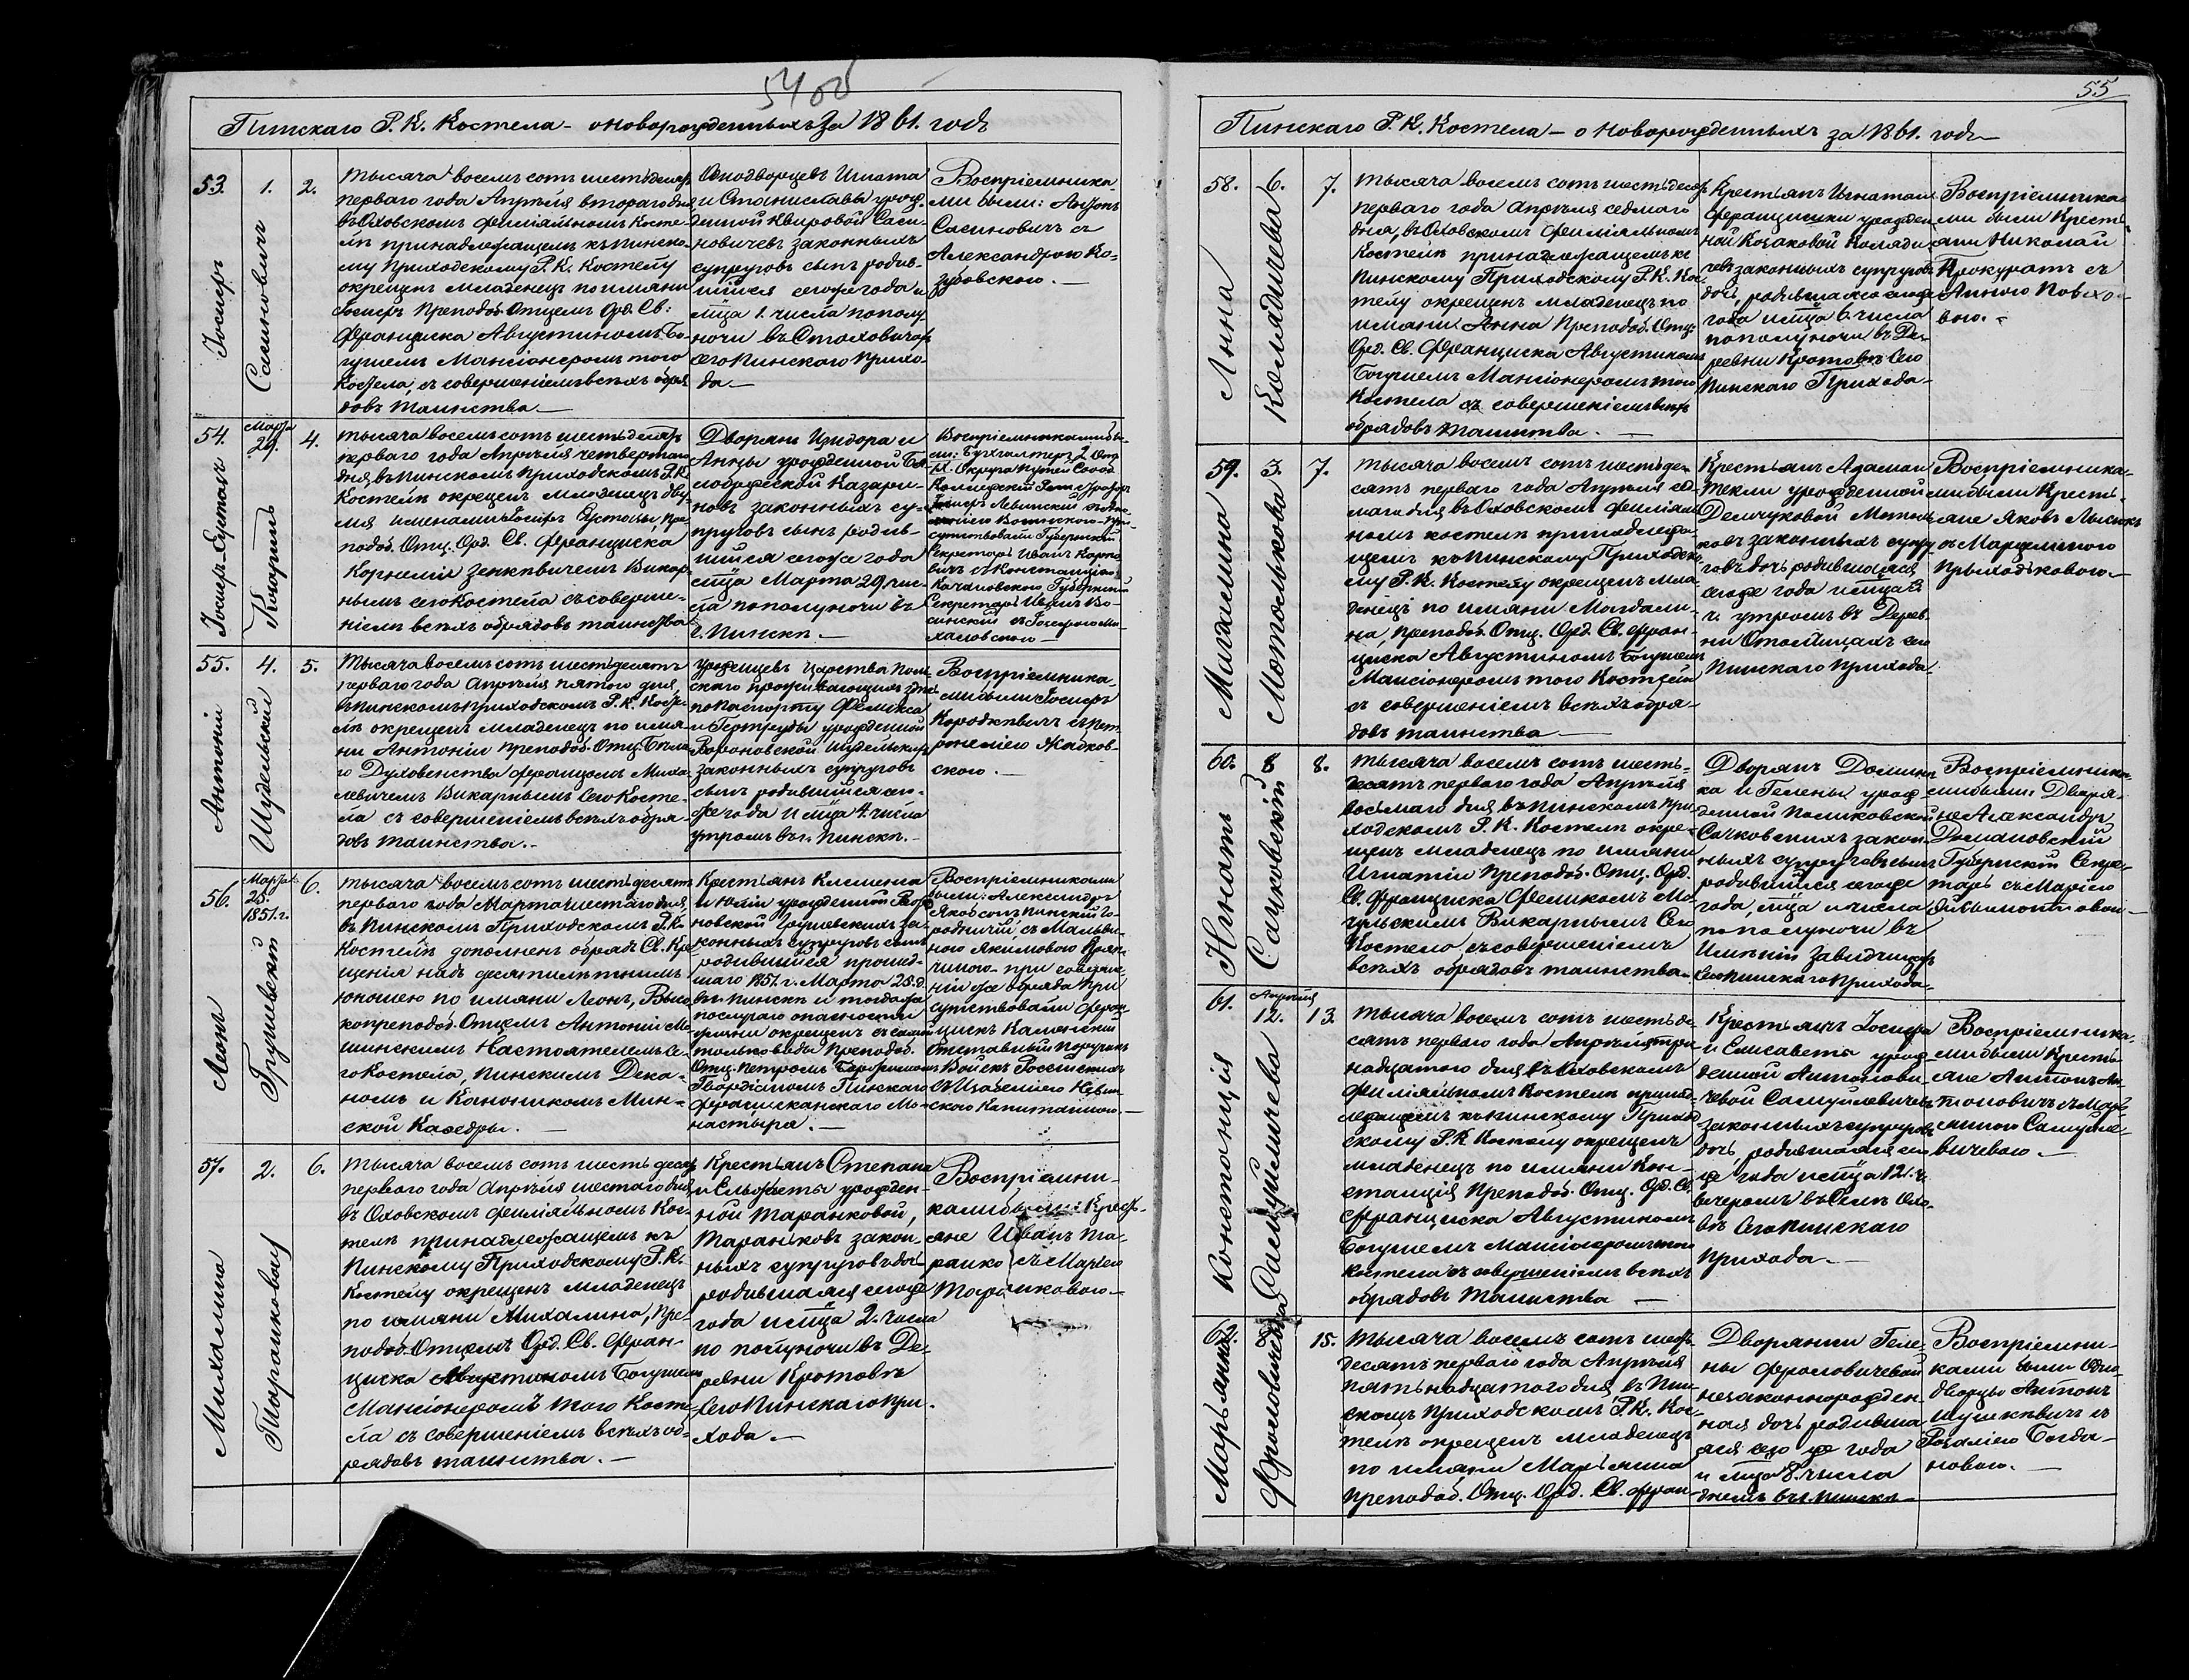 54 об
Пинскаго Р. К. Костела - о новорожденныхъ за 1861. годъ
53.
1.
2.
Іосифъ
Сасиновичъ
Тысяча восемь сотъ шестьдесятъ
перваго года Апрѣля втораго дня
въ Оховскомъ филіяльномъ Косте-
лѣ принадлежащемъ къ Пинско-
му приходскому Р. К. Костелу
окрещенъ младенецъ по имяни
Іосифъ Преподоб. Отцемъ Орд. Св:
Франциска Августиномъ Бо-
гушемъ Мансіонеромъ того
Костела, съ совершеніемъ всѣхъ обря
довъ таинства.
Однодворцевъ Игната
и Станиславы урож-
денной Саси-
новичевъ законныхъ
супруговъ сынъ родив-
шійся сегожъ года и
мѣца 1. числа по полу
ночи въ Стоховичахъ
сего Пинскаго прихо-
да.
Воспріемника-
ми были: Антонъ
Сасиновичъ съ
Александрою Ко-
зубовскою.
54.
Марта
29.
4.
Іосифъ-Евстахій
тысяча восемь сотъ шестьдесятъ
перваго года Апрѣля четвертаго
дня въ Пинскомъ приходскомъ Р. К.
Костелѣ окрещенъ младенецъ дву-
мя именами Іосифъ Пре-
подоб. Отц. Орд. Св. Франциска
Корнеліемъ Зенкѣвичемъ Викар-
нымъ сего Костела съ соверше-
ніемъ всѣхъ обрядовъ таинства
Дворянъ Изидора и
Анны урожденной
Казари-
новъ законныхъ су-
пруговъ сынъ родив-
шійся сегожъ года
мѣца Марта 29. чис-
ла по полуночи въ
г. Пинскѣ.
Воспріемниками бы-
ли: Бухгалтеръ 2 Отд.
Округа путей Сооб.
Левинскій
при-
сутствовали Губернскій
Секретарь Иванъ
съ Констанціею
Качановскою Губернскій
Секретарь
55.
4.
5.
Антоній
Шудельскій
Тысяча восемь сотъ шестьдесятъ
перваго года Апрѣля пятого дня,
въ Пинскомъ приходскомъ Р. К. Косте-
лѣ окрещенъ младенецъ по имя-
ни Антоній Преподоб. Отц. Бѣла-
го Духовенства Францомъ Миха-
левичемъ Викарнымъ сего Косте-
ла съ совершеніемъ всѣхъ обря-
довъ таинства.
урожденцевъ Царства Поль-
скаго проживающихъ здѣсь
по паспорту Феликса
и Гертруды урожденной
Вороновской Шудельскихъ
законныхъ супруговъ
сынъ родившійся се-
гожъ года и мѣца 4. числа
утромъ въ г. Пинскѣ.
Воспріемника-
ми были: Іосифъ
Короткѣвичъ съ Пет-
ронелею Жадков-
скою.
56.
Марта
25.
1851. г.
6.
Леонъ
Грушевскій
тысяча восемь сотъ шестьдесятъ
перваго года Марта шестаго дня
въ Пинскомъ Приходскомъ Р. К.
Костелѣ дополненъ обрядъ Св. Кре-
щенія надъ десятилѣтнимъ
юношею по имяни Леонъ, Высо-
копреподоб. Отцемъ Антоніемъ Мо-
шинскимъ Настоятелемъ се-
го Костела, Пинскимъ Дека-
номъ и Каноникомъ Мин-
ской Кафедры.
Крестьянъ Климента
и Юліи урожденной
Грушевскихъ за-
конныхъ супруговъ сынъ
родившійся прошед-
шаго 1851. г. Марта 25. д.
въ г. Пинскѣ и тогда же
по случаю опасности
жизни окрещенъ съ одной
только воды Преподоб.
Отц. Петромъ
Гвардіяномъ Пинскаго
Францисканскаго Мо-
настыря.
Воспріемниками
были: Александръ
Якобсонъ Пинскій Го-
родничій съ Мальви-
ною
при соверше-
ніи же обряда при
сутствовали Фран-
цискъ Каменскій
Отставный Поручикъ
Войскъ Россійскихъ
съ Изабелею Невин-
скою Капитаншою.
57.
2.
6.
Михалина
Таранковая
Тысяча восемь сотъ шестьдесятъ
перваго года Апрѣля шестаго дня
въ Оховскомъ филіяльномъ Кос-
телѣ принадлежащемъ къ
Пинскому Приходскому Р. К.
Костелу окрещенъ младенецъ
по имяни Михалина, Пре-
подоб. Отцемъ Орд. Св. Фран-
циска Августиномъ Богушемъ
Мансіонеромъ того Косте-
ла съ совершеніемъ всѣхъ об-
рядовъ таинства.
Крестьянъ Степана
и Ельжбеты урожден-
ной Таранковой,
Таранковъ закон-
ныхъ супруговъ дочь
родившаяся сегожъ
года и мѣца 2. числа
по полуночи въ Де-
ревни Кротовѣ
сего Пинскаго При-
хода.
Воспріемни-
ками были: Кресть-
яне Иванъ Та-
ранко съ Маріею
Таранковою.
55
Пинскаго Р. К. Костела - о новорожденныхъ за 1861. годъ
58.
6.
7.
Анна
Колядичева
Тысяча восемь сотъ шестьдесятъ
перваго года Апрѣля седмаго
дня, въ Оховскомъ филіяльномъ
Костелѣ принадлежащемъ къ
Пинскому Приходскому Р. К. Кос-
телу окрещенъ младенецъ по
имяни Анна Преподоб. Отц.
Орд. Св. Франциска Августиномъ
Богушемъ Мансіонеромъ того
Костела съ совершеніемъ всѣхъ
обрядовъ таинства.
Крестьянъ Игната и
Францишки урожден-
ной Козаковой Коляди-
чевъ законныхъ супруговъ
дочь, родившаяся сегожъ
года и мѣца 6. числа
по полуночи въ Де-
ревни Кротовѣ сего
Пинскаго Прихода.
Воспріемника-
ми были Кресть-
яни Николай
Прокуратъ съ
Анною Повхо-
вою.
59.
3.
7.
Магдалина
Мотолькова
Тысяча восемь сотъ шестьде-
сятъ перваго года Апрѣля сед-
маго дня въ Оховскомъ филіяль-
номъ костелѣ принадлежа-
щемъ къ Пинскому Приходско-
му Р. К. Костелу окрещенъ мла-
денецъ по имяни Магдали-
на, Преподоб. Отц. Орд. Св. Фран-
циска Августиномъ Богушемъ
Мансіонеромъ того Костела
съ совершеніемъ всѣхъ обря-
довъ таинства
Крестьянъ Адама и
Текли урожденной
Демчуковой Мотоль-
ковъ законныхъ супру-
говъ дочь родившаяся
сегоже года и мѣца 3
ч. утромъ въ Дерев-
ни сего
Пинскаго прихода.
Воспріемника-
ми были Кресть-
яне Яковъ Лысюкъ
съ Марцелиною
Приходьковою.
60.
8
8.
Игнатъ
Сачковскій
Тысяча восемь сотъ шесть-
десятъ перваго года Апрѣля
восьмаго дня, въ Пинскомъ При-
ходскомъ Р. К. Костелѣ окре-
щенъ младенецъ по имяни
Игнатій Преподоб. Отц. Орд.
Св. Франциска Феликсомъ Мо-
чульскимъ Викарнымъ Сего
Костела, съ совершеніемъ
всѣхъ обрядовъ таинства.
Дворянъ Домини-
ка и Гелены урож-
денной
Сачковскихъ закон-
ныхъ супруговъ сынъ
родившійся сегоже
года, мѣца и числа
по полуночи въ
Имѣніи Завидчицахъ
сего Пинскаго Прихода.
Воспріемника-
ми были: Дворя-
не Александръ
Домановскій
Губернскій Секре-
тарь съ Маріею
61.
Апрѣля
12.
13.
Констанція
Самуйличева
Тысяча восемь сотъ шестьде-
сятъ перваго года Апрѣля три-
надцатого дня, въ Оховскомъ
Филіяльномъ Костелѣ принад-
лежащемъ къ Пинскому Приход-
скому Р. К. Костелу окрещенъ
младенецъ по имяни Кон-
станція Преподоб. Отц. Орд. Св.
Франциска Августиномъ
Богушемъ Мансіонеромъ того
костела съ совершеніемъ всѣхъ
обрядовъ таинства
Крестьянъ Іосифа
и Елисаветы урож-
денной Антонови-
чевой Самуйлевичевъ
законныхъ супруговъ
дочь, родившаяся сего
же года и мѣца 12. ч.
вечеромъ въ Селѣ Охо-
вѣ сего Пинскаго
прихода.
Воспріемника-
ми были Кресть-
яне Антонъ Ан-
тоновичъ съ
Самуйле-
вичевою.
62.
8.
15.
Марьянна
Фроловичева
Тысяча восемь сотъ шесть-
десятъ перваго года Апрѣля
пятьнадцатого дня въ Пин-
скомъ Приходскомъ Р. К. Кос-
телѣ окрещенъ младенецъ
по имяни Марьянна
Преподоб. Отц. Орд. Св. Фран-
Дворянки Геле-
ны Фроловичевой
незаконнорожден-
ная дочь родивша-
яся сего же года
и мѣца 8. числа
днемъ въ г. Пинскѣ
Воспріемни-
ками были Одно-
дворцы Антонъ
съ
Розаліею Богда-
новою.